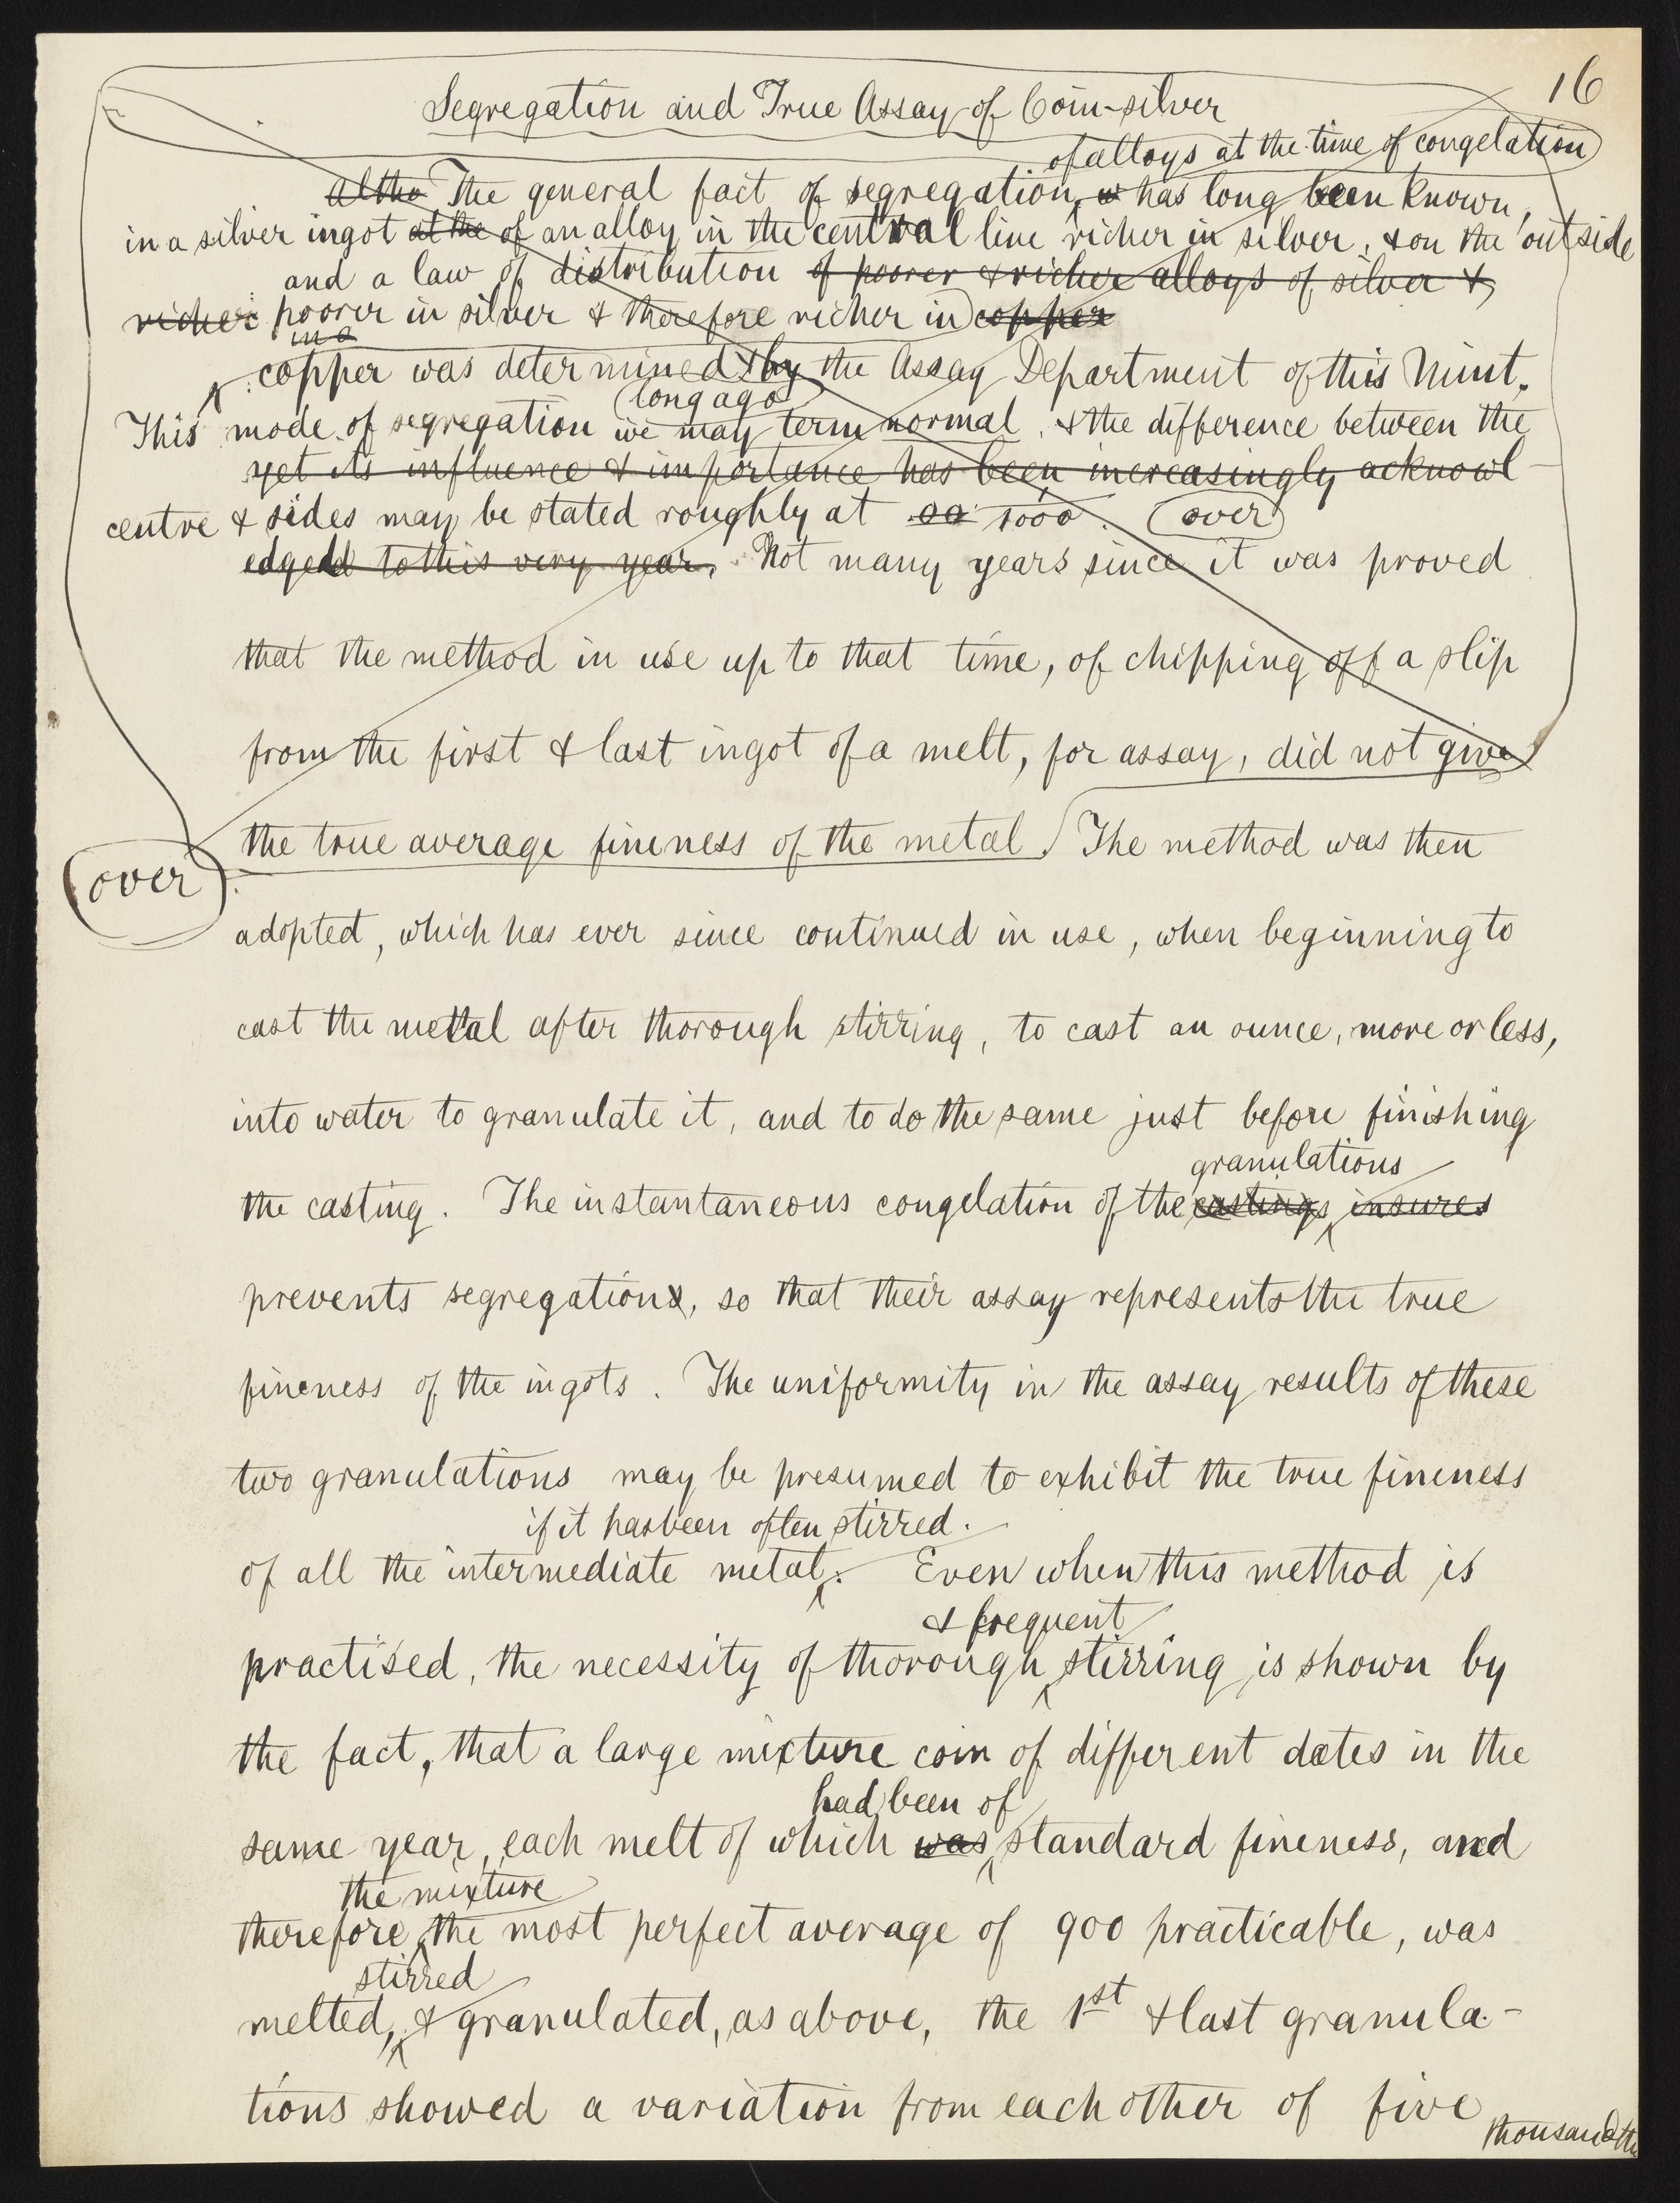 16
Segregation and True Assay of Coin-silver
of alloys at the time of congelation
altho The general fact of segregation, has long been known,
in a silver ingot at the of an alloy in the central line richer in silver, & on the outside
and a law of distribution of poorer & richer alloys of silver &
richer poorer in silver & therefore richer in copper
in a
copper was determined by the Assay Department of this Mint.
long ago
This mode of segregation we may term normal, & the difference between the
yet its influence & importance has been increasingly acknowl-
centre & sides may be stated roughly at 1000. over
edged to this very year. Not many years since it was proved
that the method in use up to that time, of chipping off a slip
from the first & last ingot of a melt, for assay, did not give
the true average fineness of the metal. The method was then
over
adopted, which has ever since continued in use, when beginning to
cast the metal after thorough stirring, to cast an ounce, more or less,
into water to granulate it, and to do the same just before finishing
granulations
the casting. The instantaneous congelation of the castings insures
prevents segregation, so that their assay represents the true
fineness of the ingots. The uniformity in the assay results of these
two granulations may be presumed to exhibit the true fineness
if it has been often stirred.
of all the intermediate metal. Even when this method is
& frequent
practised, the necessity of thorough stirring is shown by
the fact, that a large mixture coin of different dates in the
had been of
same year, each melt of which was standard fineness, and
the mixture
therefore the most perfect average of 900 practicable, was
stirred
melted, & granulated, as above, the 1st & last granula-
tions showed a variation from each other of five
thousandths